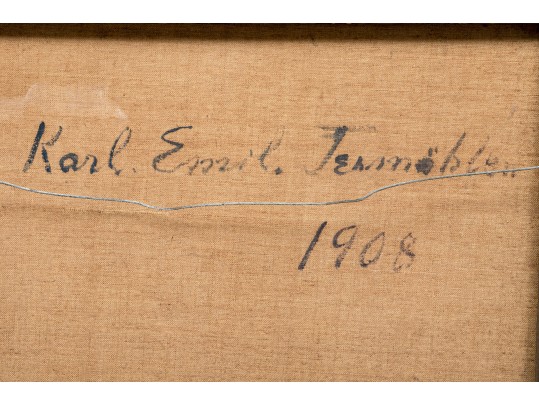 Karl. Emil. Termöhlen
1908